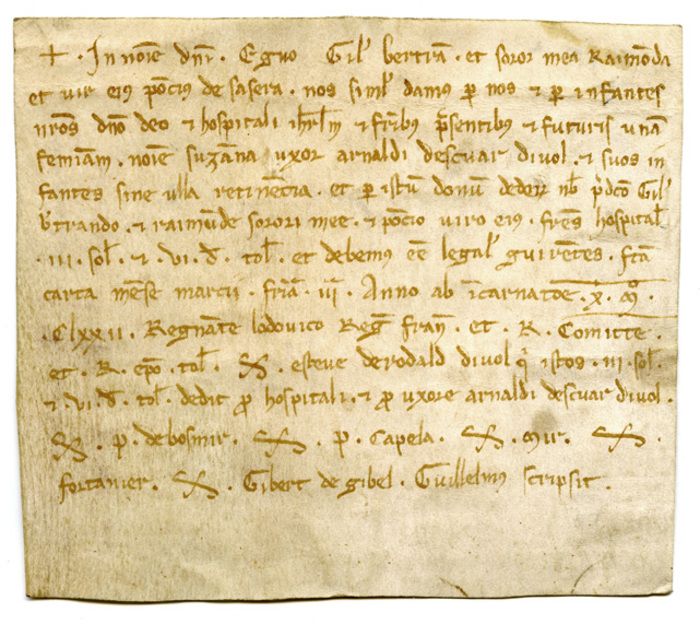 + . In noīe dnī . Eguo Gil' bertrā . et soror mea Raimōda
et vir eius pōcius de sasera . nos simł damus p nos & p infantes
nrōs dnō deo & hospitali ihrłm & frībus psentibus & futuris unā
femīam . noīe suzāna uxor arnaldi descuair divol . & suos in
fantes sine ulla retinēcia . et p istū donū dederī nb pdco Gil'
b'trando . & raimūde sorori mee . & pōcio viro eius . frēs hospital'
. III . sol' . & . VI . d' . tol' . et debemus eē legal' guirētes . fcā
carta mēse marcii . fria . III . Anno ab īcarnatōe . x . M .
. CLXXII . Regnāte lodovico Reg' fran' . et . R . Comitte .
et . R . epō . tol' . esteve derodald divol q istos . III . sol' .
& . VI . d' . tol' . dedit p hospitali . & p uxore arnaldi descuar divol .
. p . debosmir . . p . capela . . mir .
fortanier . . Gibert de gibel . Guillelmus scripsit .